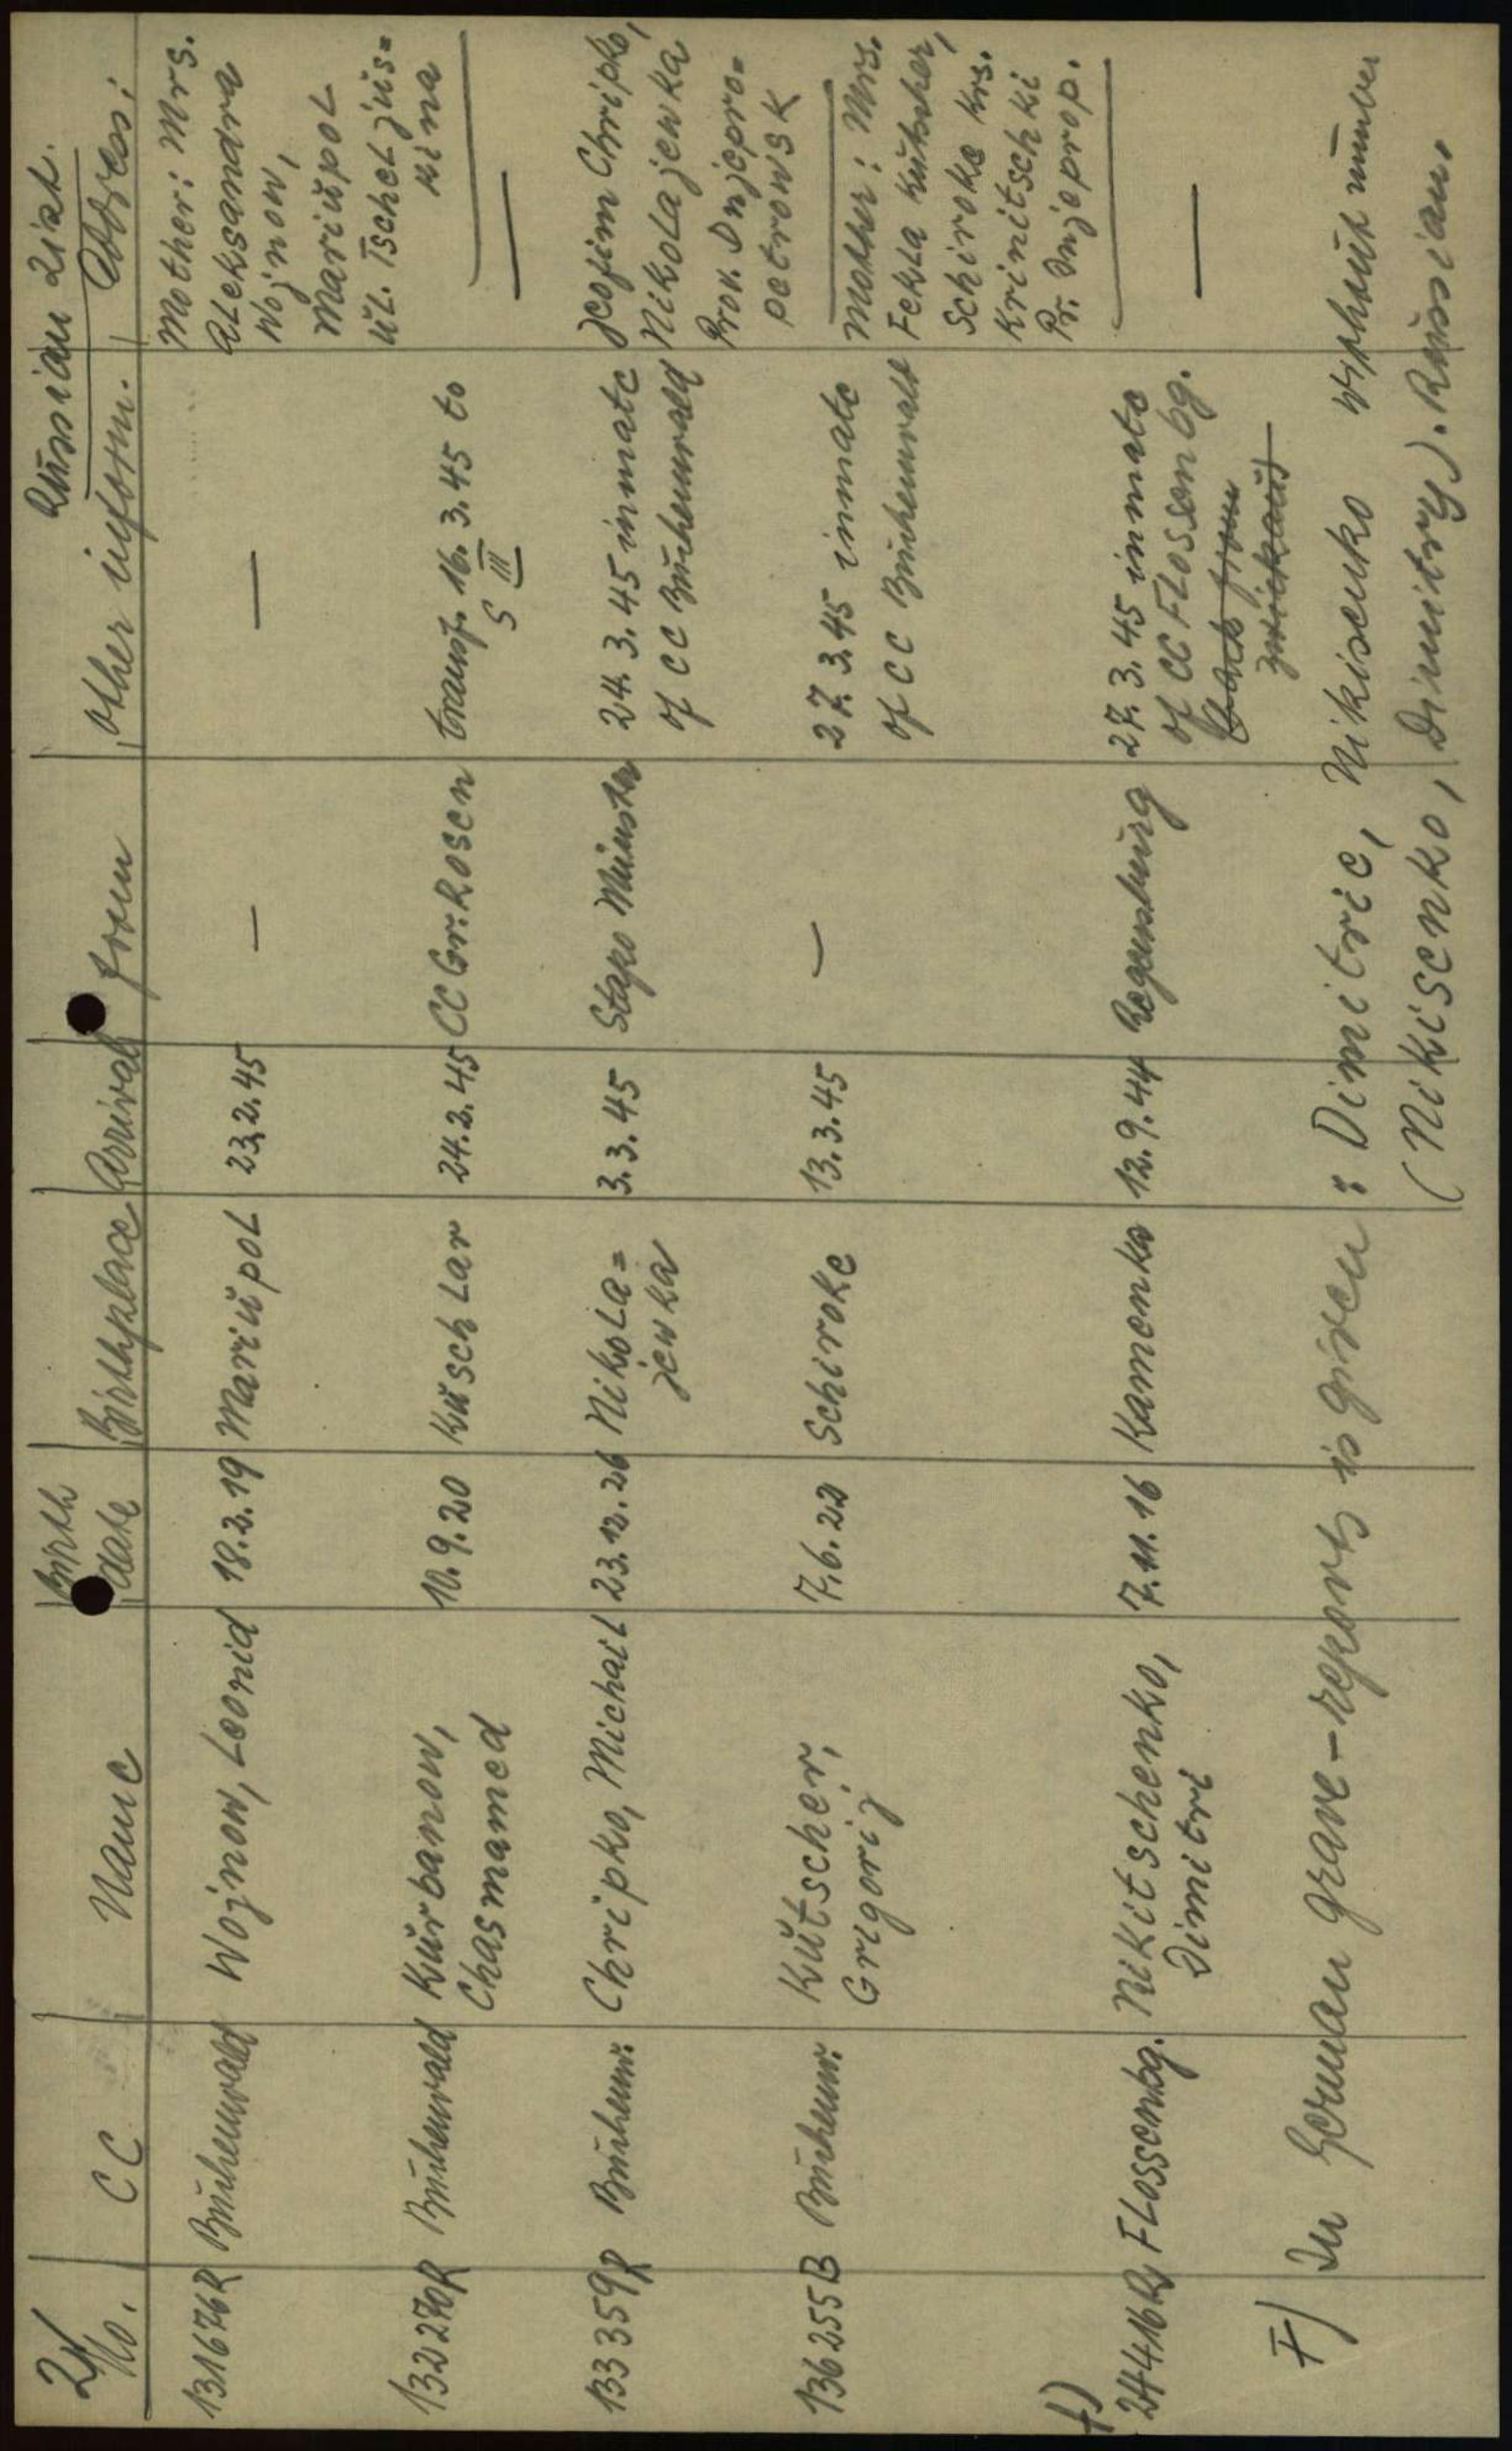 Russian List.
2/
No. CC Name Birth date Birthplace Arrival from other inform. Address:
131676R Buchenwald Wojnow, Leonid 18.2.19 Mariupol 23.2.45 — — Mother: Mrs.
Aleksandra
Wojnow,
Mariupol
ul. Tscheljus=
kina
132270R Buchenwald Kurbanow, 10.9.20 Kuschlar 24.2.45 CC Gr. Rosen transf. 16.3.45 to —
Chasmamed S III
133359R Buchenw. Chripko, Michail 23.12.26 Nikola= 3.3.45 Stapo Münster 24.3.45 inmate Jeofim Chripko,
jewka of CC Buchenwald Nikolajewka
Prov. Dnjepro=
petrowsk
136255B Buchenw. Kutscher, 7.6.22 Schiroke 13.3.45 — 27.3.45 inmate Mother: Mrs.
Grigorij of CC Buchenwald Fekla Kutscher,
Schiroke Krs.
Krinitschki
Pr. Dnjeprop.
+)
24416R Flossenbg. Nikitschenko, 7.11.16 Kamenka 12.9.44 Regensburg 27.3.45 inmate —
Dimitri of CC Flossenbg.
back from
+) In German grave-reports is given: Dimitric, Nikisenko without number
(Nikisenko, Dimitry). Russian.